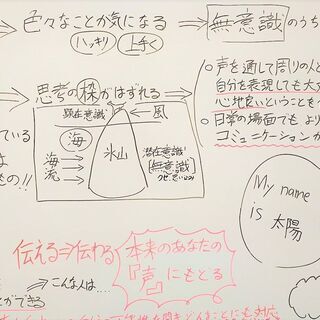 ⇒ 色々なことが気になる ⇒ 無意識のうち
ハッキリ 上手く
⇒ 思考の枠がはずれる ⇒
○声を通して周りの人
自分を表現しても大
心地良いということを
○日常の場面でもより
コミュニケーションが
顕在意識 ←風
海
海流
氷山
潜在意識
無意識
ている
は
もの!!
My name
is 太陽
伝える⇒伝わる
本来のあなたの
『声』にもどる
こんな人は....
とができる